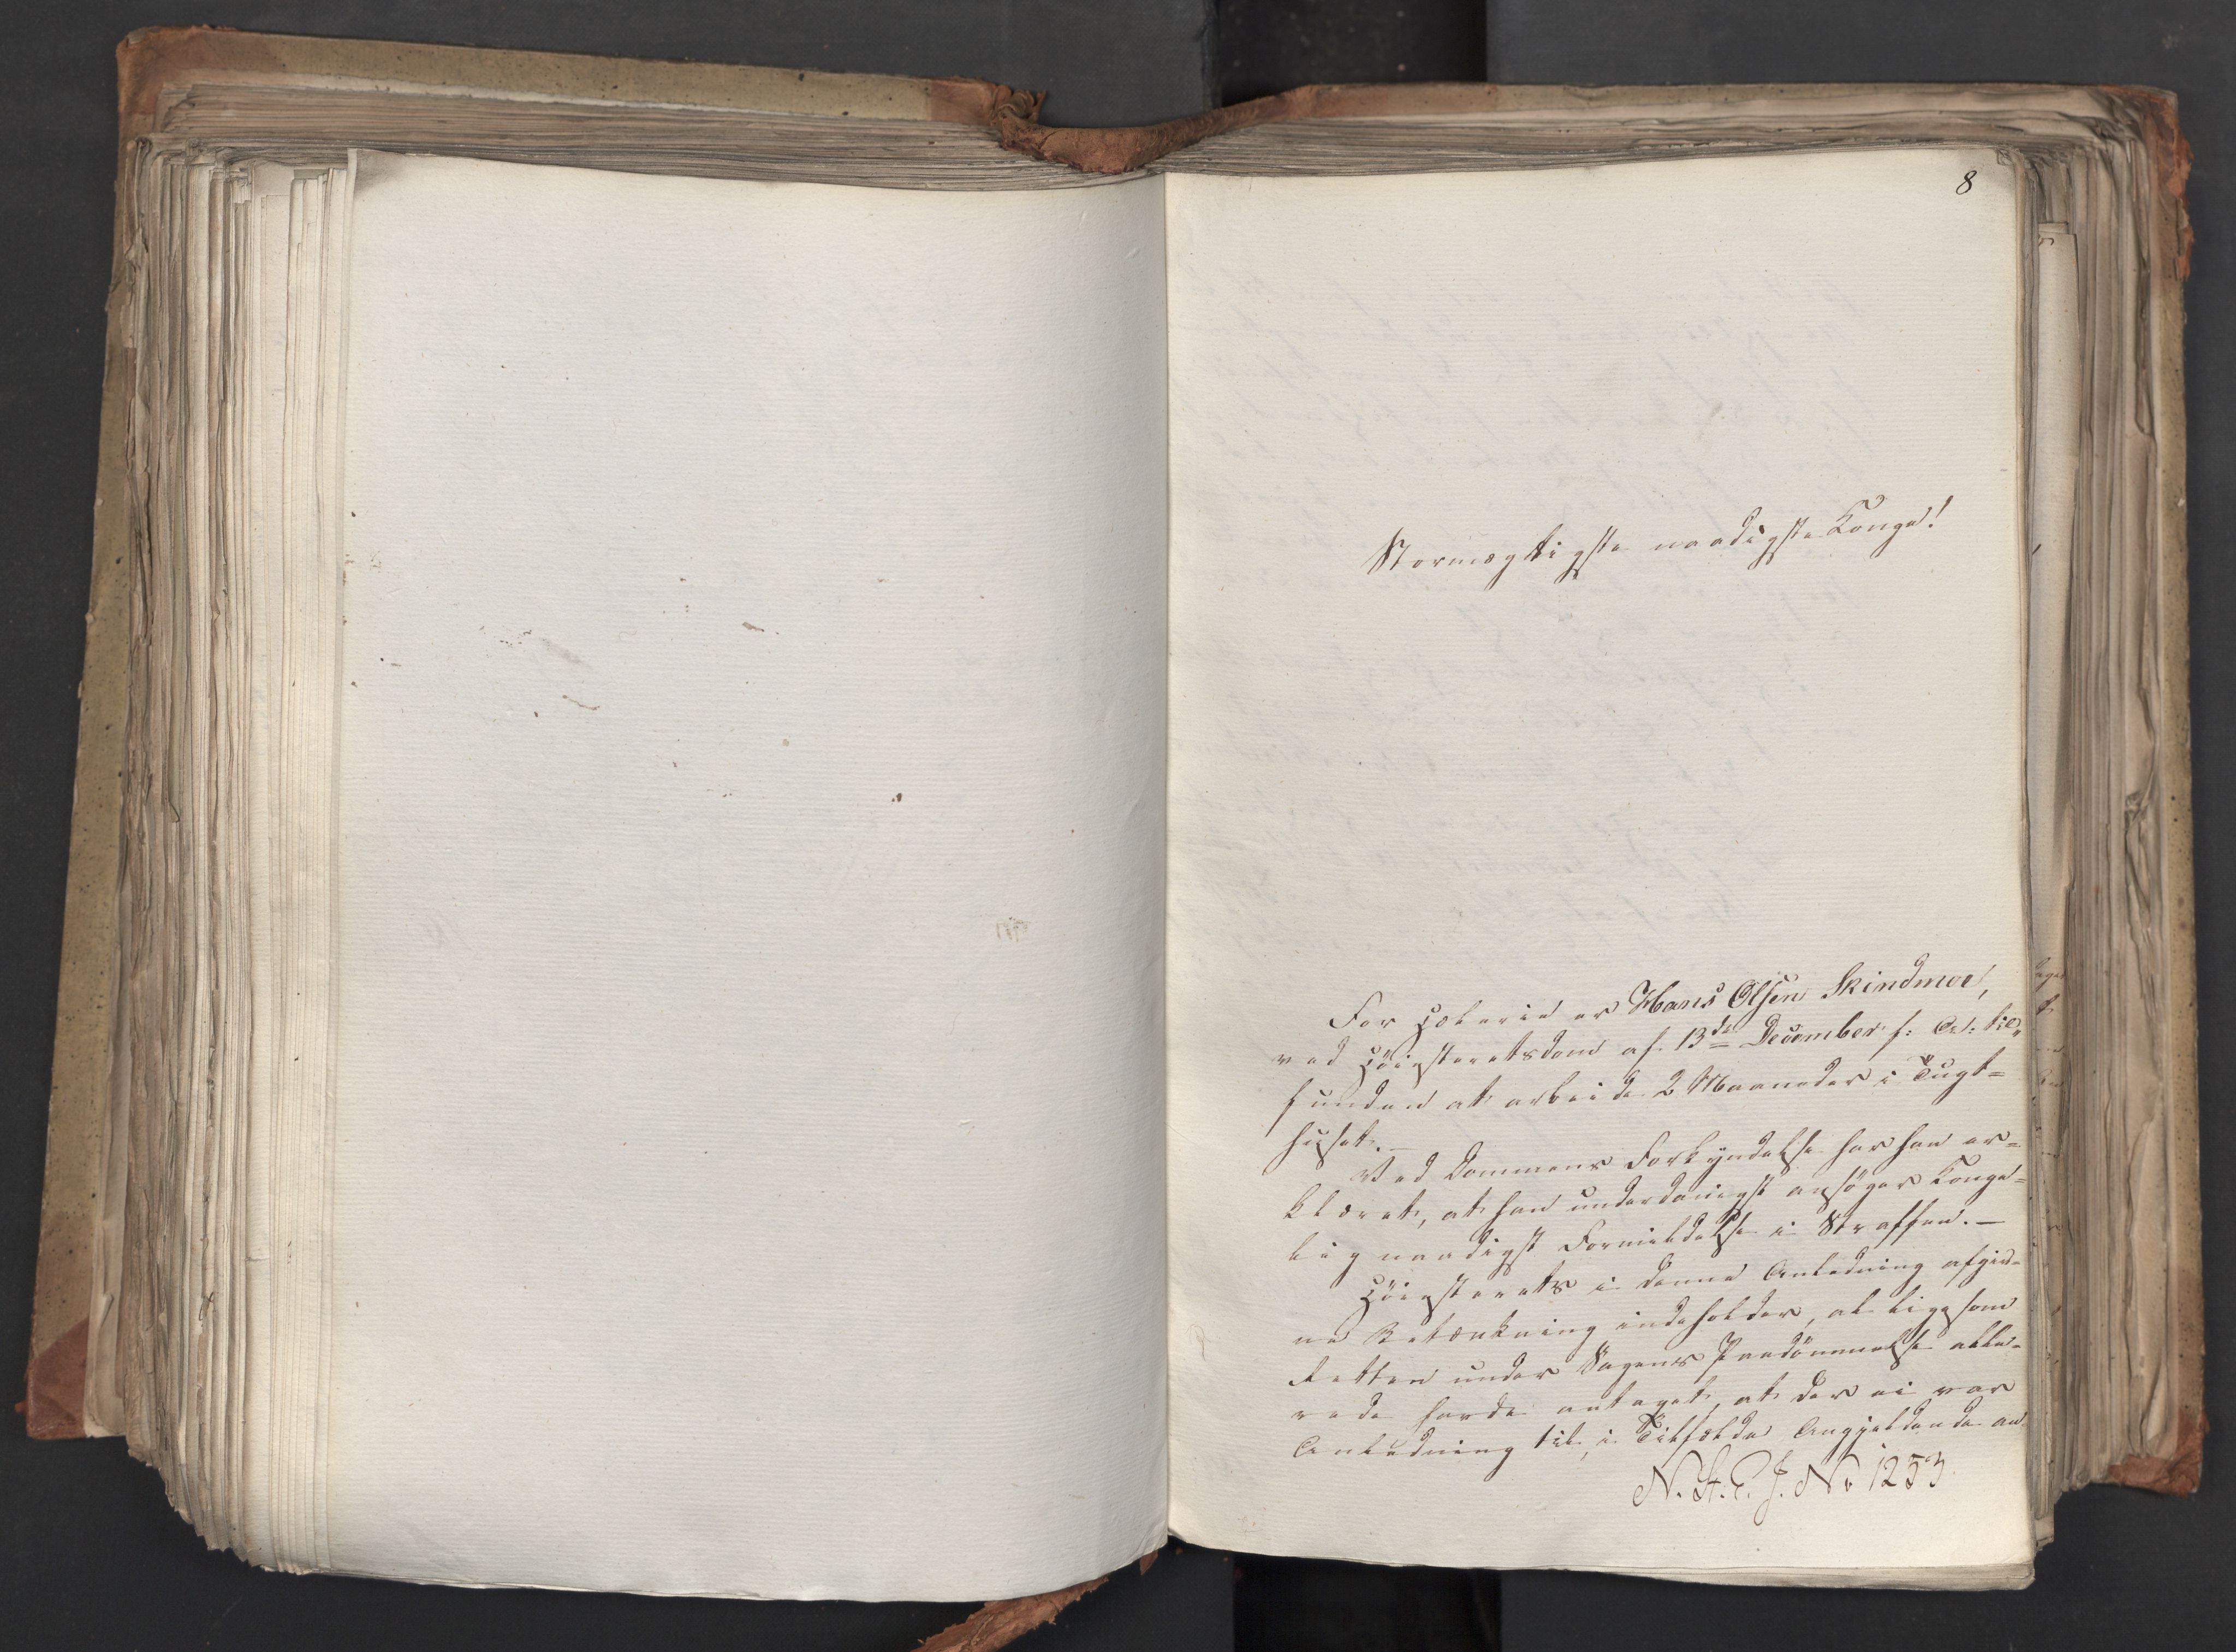 8
Stormægtigste naadigste Konge!
For Hæleri er Hans Olsen Skindmoe,
ved Höiesteretsdom af 13de December f: A: til-
funden at arbeide 2 Maaneder i Tugt=
huset. —
Ved Dommens Forkyndelse har han er=
klæret, at han underdanigst ansöger Konge=
lig naadigst Formildelse i Straffen. —
Höiesterets i denne Anledning afgiv-
ne Betænkning indeholder, at ligesom
Retten under Sagens Paadömmelse alle-
rede havde antaget, at der ei var
Anledning til, i Tilfælde Angjeldende an
N. St. E. J. No 1253